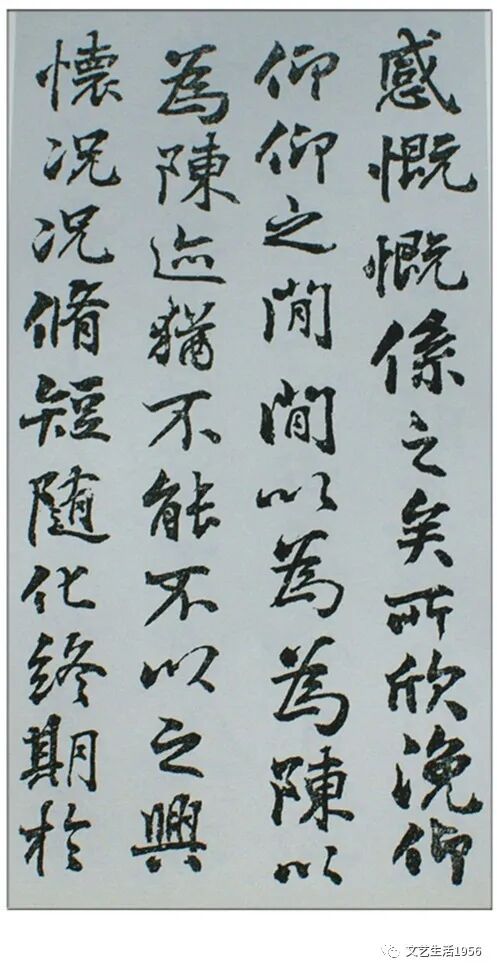 感慨慨係之矣所欣俛仰
仰仰之閒閒以為為陳以
為陳迹猶不能不以之興
懷况况脩短隨化終期於
文艺生活1956